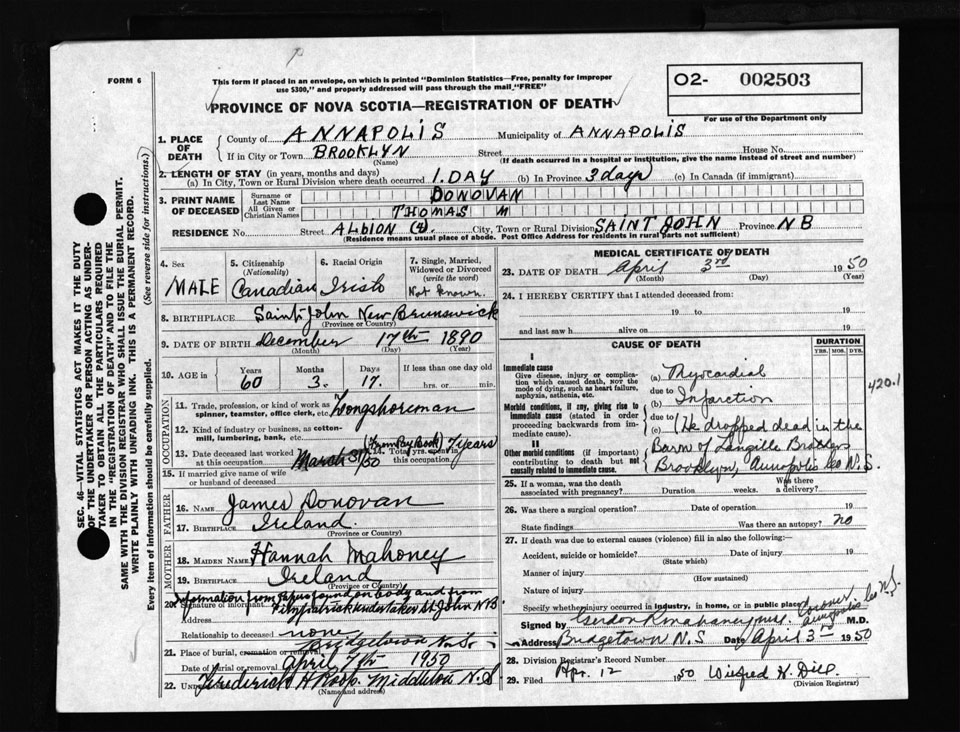 FORM 6
This form if placed in an envelope, on which is printed "Dominion Statistics—Free, penalty for improper
use $300," and properly addressed will pass through the mail "FREE"
O2- 002503
For use of the Department only
PROVINCE OF NOVA SCOTIA—REGISTRATION OF DEATH
1. PLACE OF DEATH
County of ANNAPOLIS Municipality of ANNAPOLIS
If in City or Town BROOKLYN Street House No.
(Name) (If death occurred in a hospital or institution, give the name instead of street and number)
2. LENGTH OF STAY (in years, months and days)
(a) In City, Town or Rural Division where death occurred 1.DAY (b) In Province 3 days (c) In Canada (if immigrant)
3. PRINT NAME OF DECEASED
Surname or Last Name DONOVAN
All Given or Christian Names THOMAS M
RESIDENCE No. Street ALBION City, Town or Rural Division SAINT JOHN Province NB
(Residence means usual place of abode. Post Office Address for residents in rural parts not sufficient)
4. Sex MALE
5. Citizenship (Nationality) Canadian
6. Racial Origin Irish
7. Single, Married, Widowed or Divorced (write the word) Not known.
8. BIRTHPLACE Saint John New Brunswick
(Province or Country)
9. DATE OF BIRTH December 17th 1890
(Month) (Day) (Year)
10. AGE in Years Months Days If less than one day old
60 3. 17. hrs. or min.
OCCUPATION
11. Trade, profession, or kind of work as spinner, teamster, office clerk, etc. Longshoreman
12. Kind of industry or business, as cotton-mill, lumbering, bank, etc.
13. Date deceased last worked at this occupation March 31/50
14. Total yrs. spent in this occupation (From Pay Book) 7 years
15. If married give name of wife or husband of deceased
FATHER
16. Name James Donovan
17. Birthplace Ireland.
(Province or Country)
MOTHER
18. Maiden Name Hannah Mahoney
19. Birthplace Ireland
(Province or Country)
Information from papers found on body and from
20. Signature of informant Fitzpatrick undertaker St. John NB
Address
Relationship to deceased none
21. Place of burial, cremation or removal Bridgetown N.S.
Date of burial or removal April 7th 1950
22. Undertaker Frederick H Roop. Middleton N.S
(Name and address)
MEDICAL CERTIFICATE OF DEATH
23. DATE OF DEATH April 3rd 1950
(Month) (Day) (Year)
24. I HEREBY CERTIFY that I attended deceased from:
19 to 19
and last saw h alive on 19
CAUSE OF DEATH
DURATION
YRS. MOS. DYS.
I
Immediate cause
Give disease, injury or complication which caused death, NOT the mode of dying, such as heart failure, asphyxia, asthenia, etc.
(a) Myocardial
due to
Morbid conditions, if any, giving rise to immediate cause (stated in order proceeding backwards from immediate cause).
(b) Infarction
420.1
due to
(c) (He dropped dead in the
II
Other morbid conditions (if important) contributing to death but not causally related to immediate cause.
Barn of Langille Brothers
Brooklyn, Annapolis Co N.S.
25. If a woman, was the death associated with pregnancy? Duration weeks. Was there a delivery?
26. Was there a surgical operation? Date of operation 19
State findings Was there an autopsy? no
27. If death was due to external causes (violence) fill in also the following:
Accident, suicide or homicide? Date of injury 19
(State which)
Manner of injury
(How sustained)
Nature of injury
Specify whether injury occurred in industry, in home, or in public place
Signed by Gordon K Mahaney M.D. Coroner Annapolis Co N.S.
Address Bridgetown N.S Date April 3rd 1950
28. Division Registrar's Record Number
29. Filed Apr. 12 1950 Wilfred H. Dill
(Division Registrar)
SEC. 46—VITAL STATISTICS ACT MAKES IT THE DUTY
OF THE UNDERTAKER OR PERSON ACTING AS UNDER-
TAKER TO OBTAIN ALL THE PARTICULARS REQUIRED
IN THE "REGISTRATION OF DEATH" AND TO FILE THE
SAME WITH THE DIVISION REGISTRAR WHO SHALL ISSUE THE BURIAL PERMIT.
WRITE PLAINLY WITH UNFADING INK. THIS IS A PERMANENT RECORD.
Every item of information should be carefully supplied. (See reverse side for instructions.)